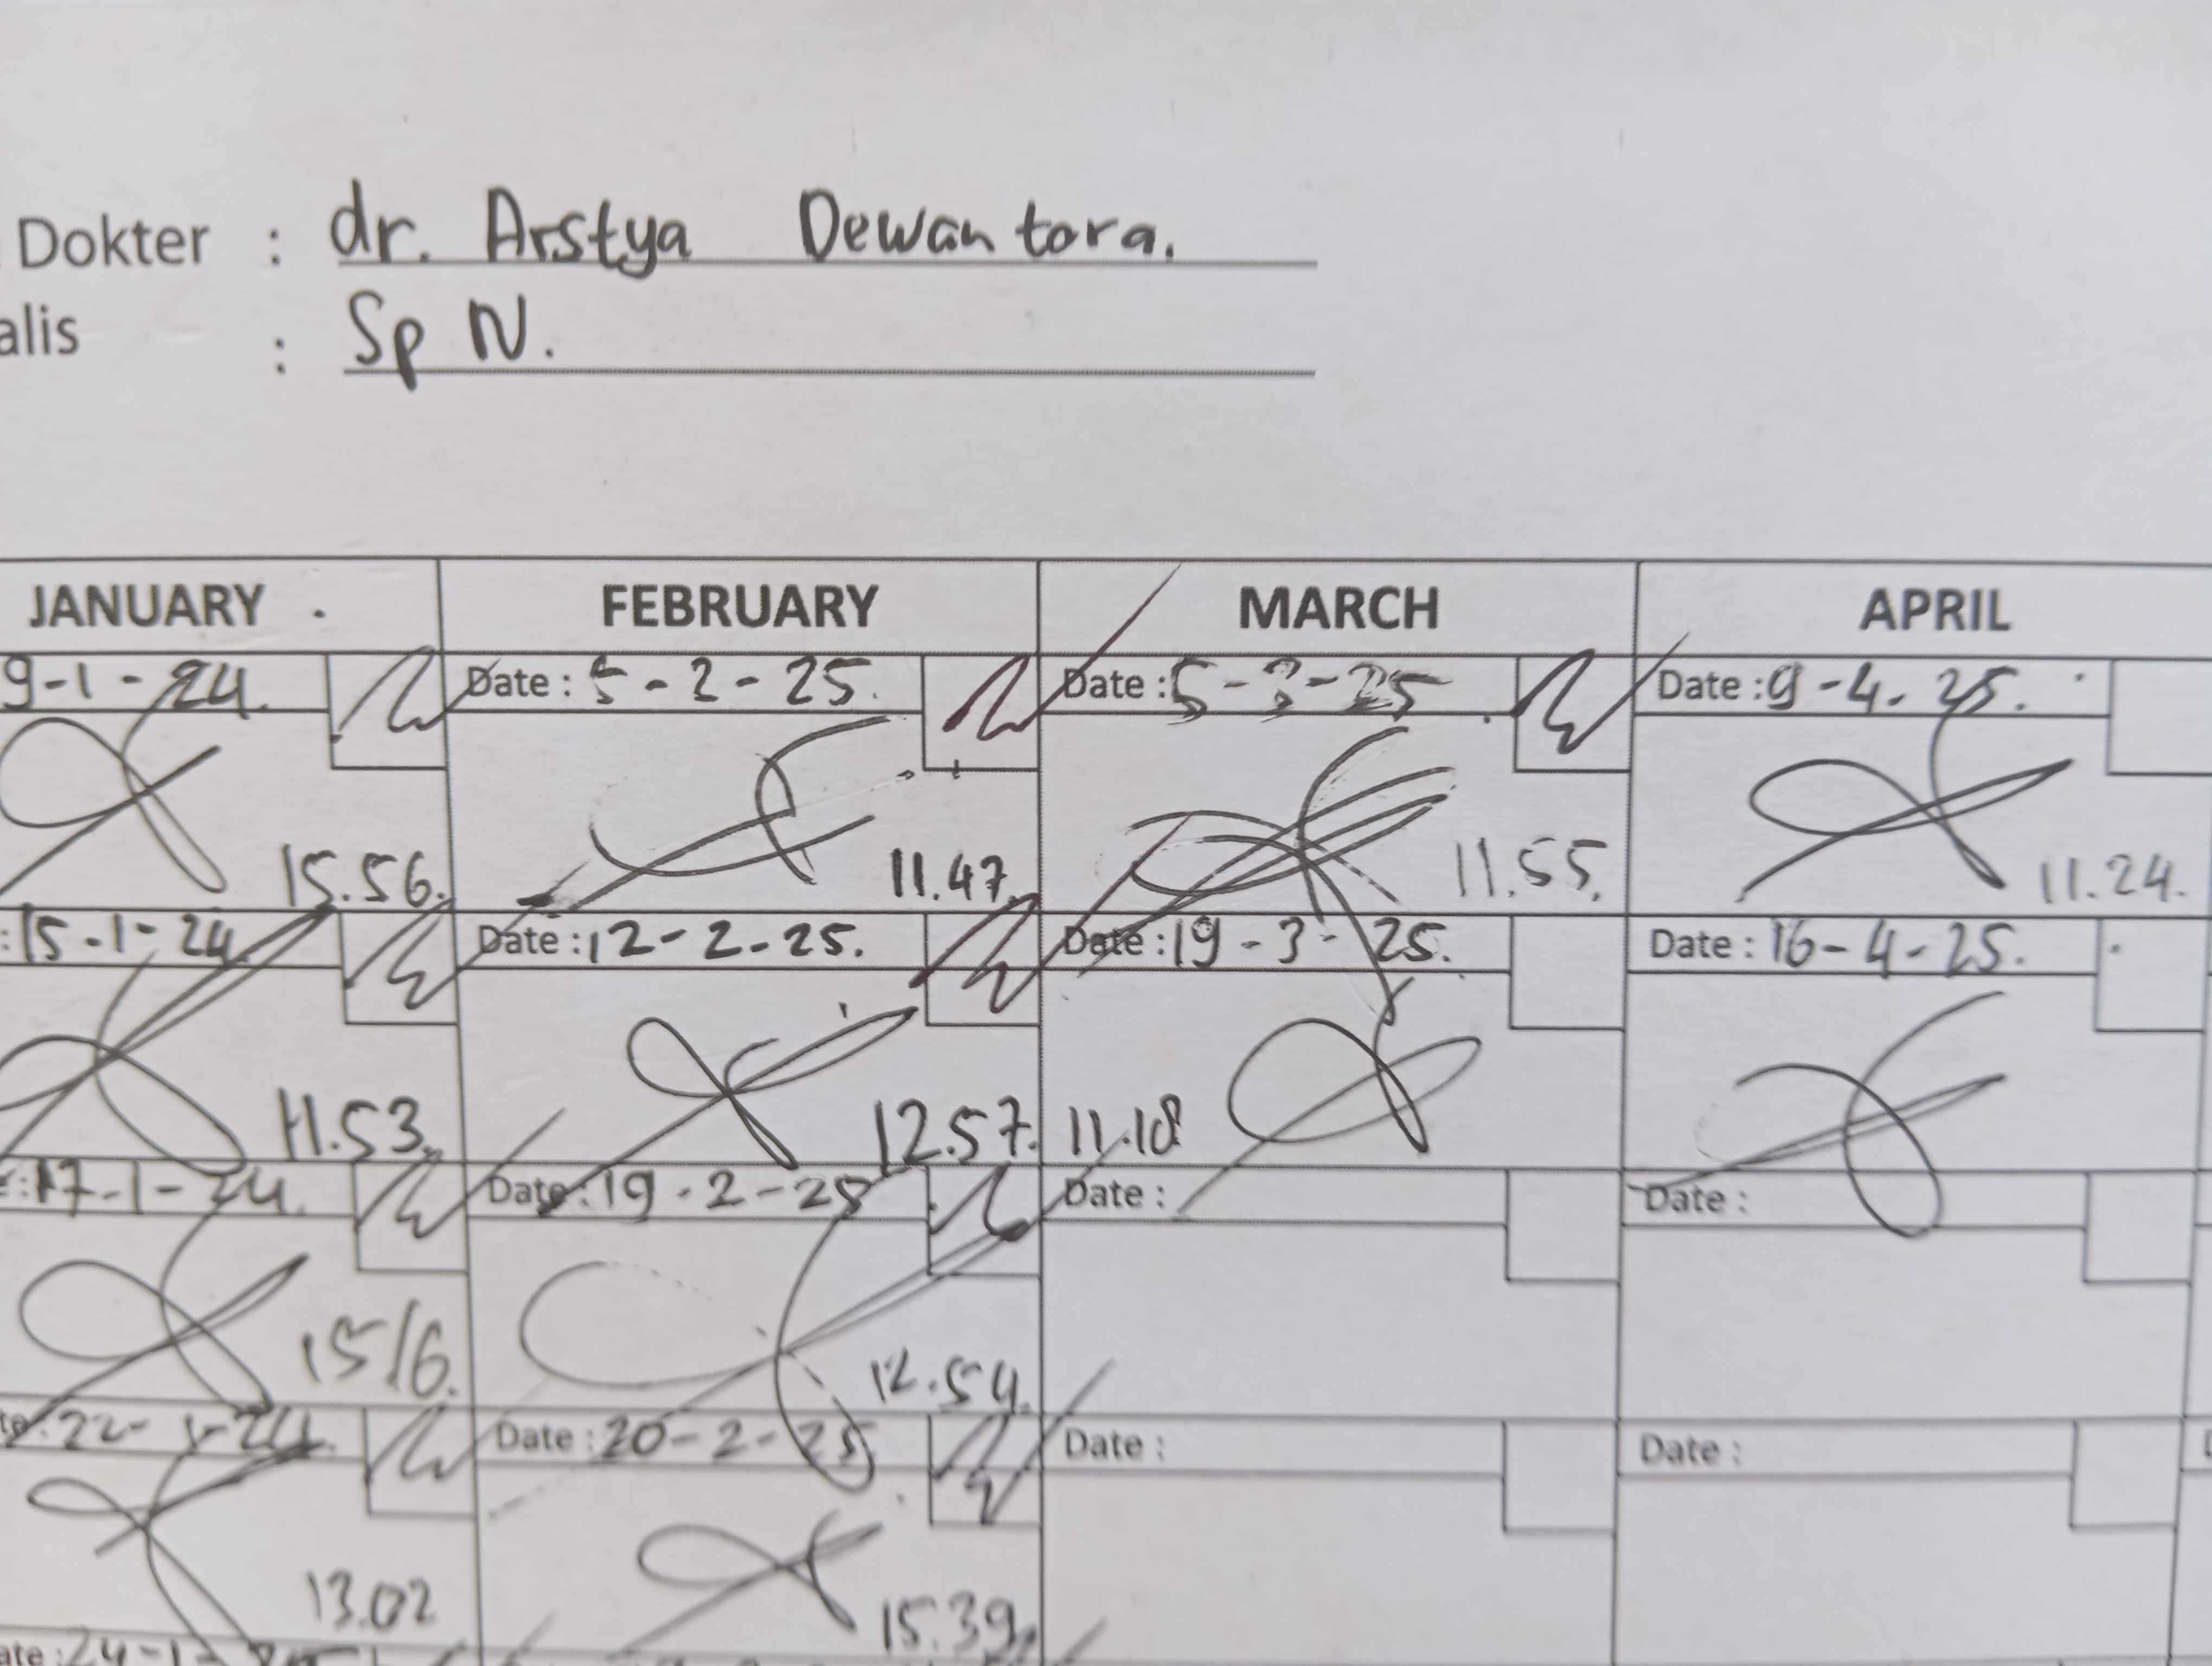 Dokter : dr. Arstya Dewantora.
alis : Sp N.
JANUARY FEBRUARY MARCH APRIL
9-1-24. Date : 5-2-25. Date : 5-3-25 Date : 9-4-25.
15.56. 11.47. 11.55. 11.24.
: 15-1-24 Date : 12-2-25. Date : 19-3-25. Date : 16-4-25.
11.53. 12.57. 11.18
: 17-1-24. Date : 19-2-25 Date : Date :
15/6. 12.54.
te : 22-1-24. Date : 20-2-25 Date : Date :
13.02 15.39.
ate : 24-1-